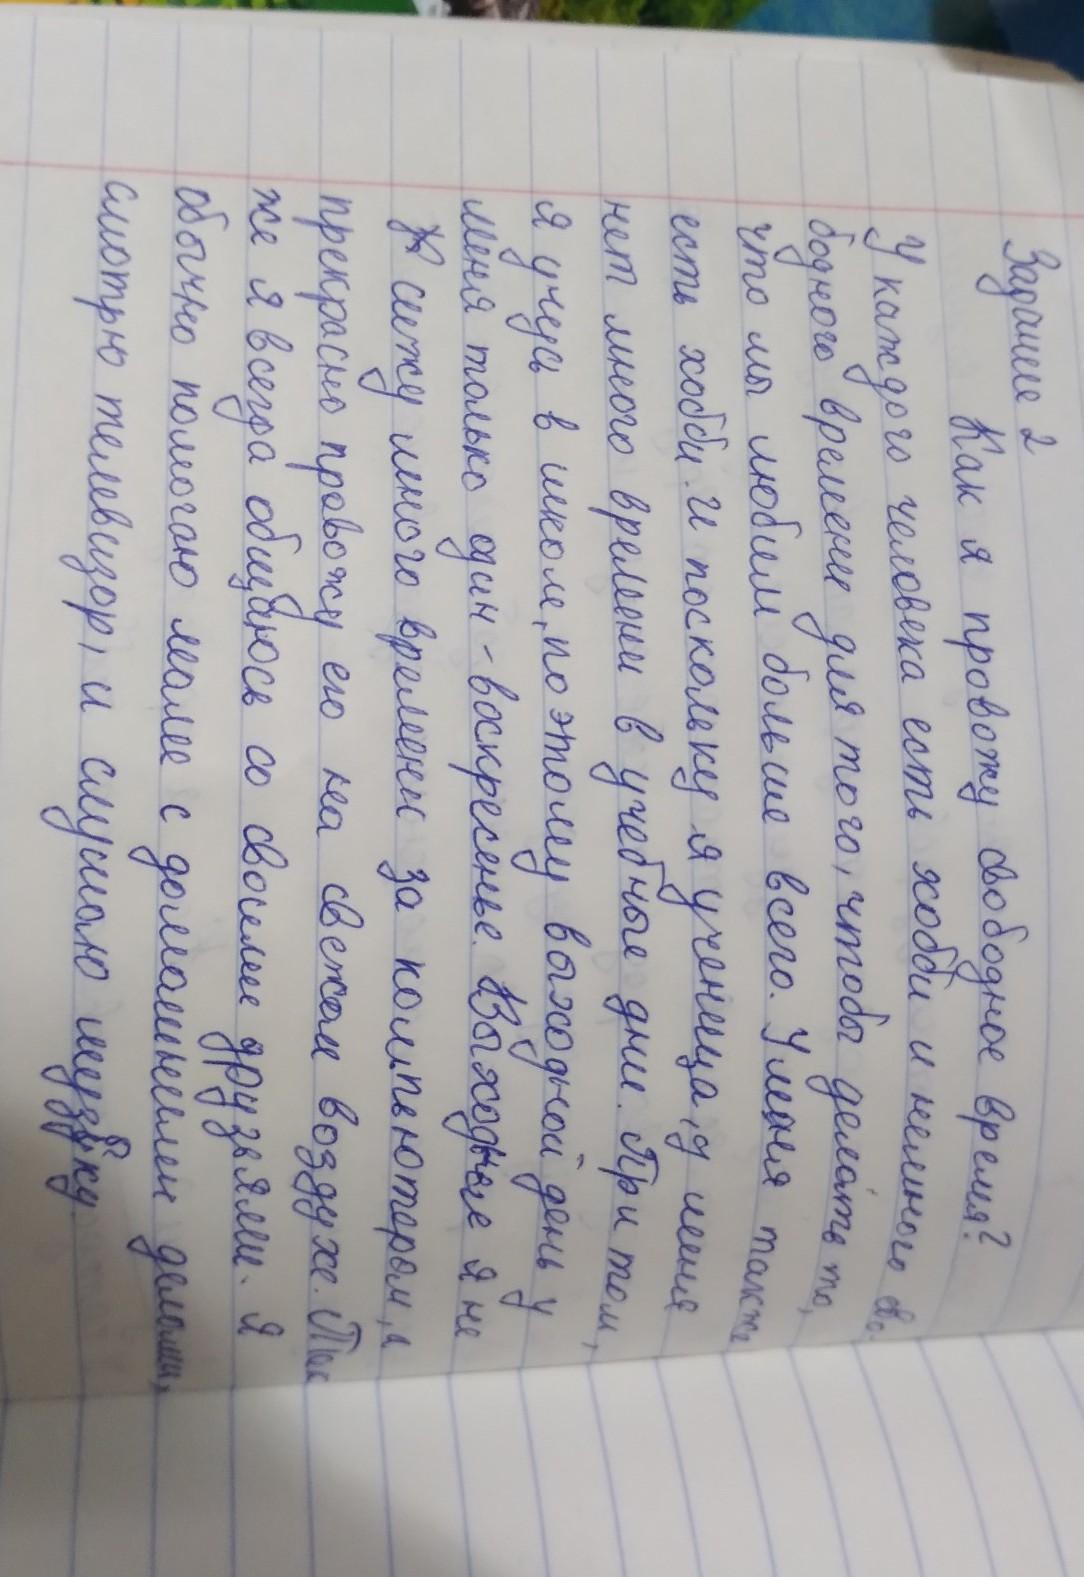 Задание 2
Как я провожу свободное время?
У каждого человека есть хобби и немного сво-
бодного времени для того, чтобы делать то,
что мы любим больше всего. У меня также
есть хобби. И поскольку я ученица, у меня
нет много времени в учебные дни. При том,
я учусь в школе, по этому выходной день у
меня только один - воскресенье. Выходные я не
сижу много времени за компьютером, а
прекрасно провожу его на свежем воздухе. Так
же я всегда общаюсь со своими друзьями. Я
обычно помогаю маме с домашними делами,
смотрю телевизор, и слушаю музыку.